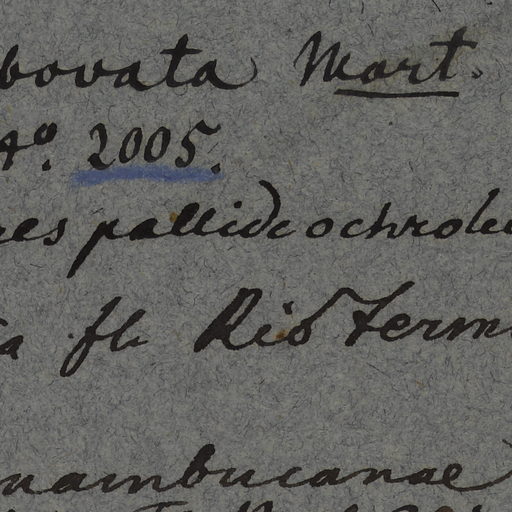 bovata Mart.
4º. 2005.
res pallide ochroleu
a fl. Rio Term
nambucanae